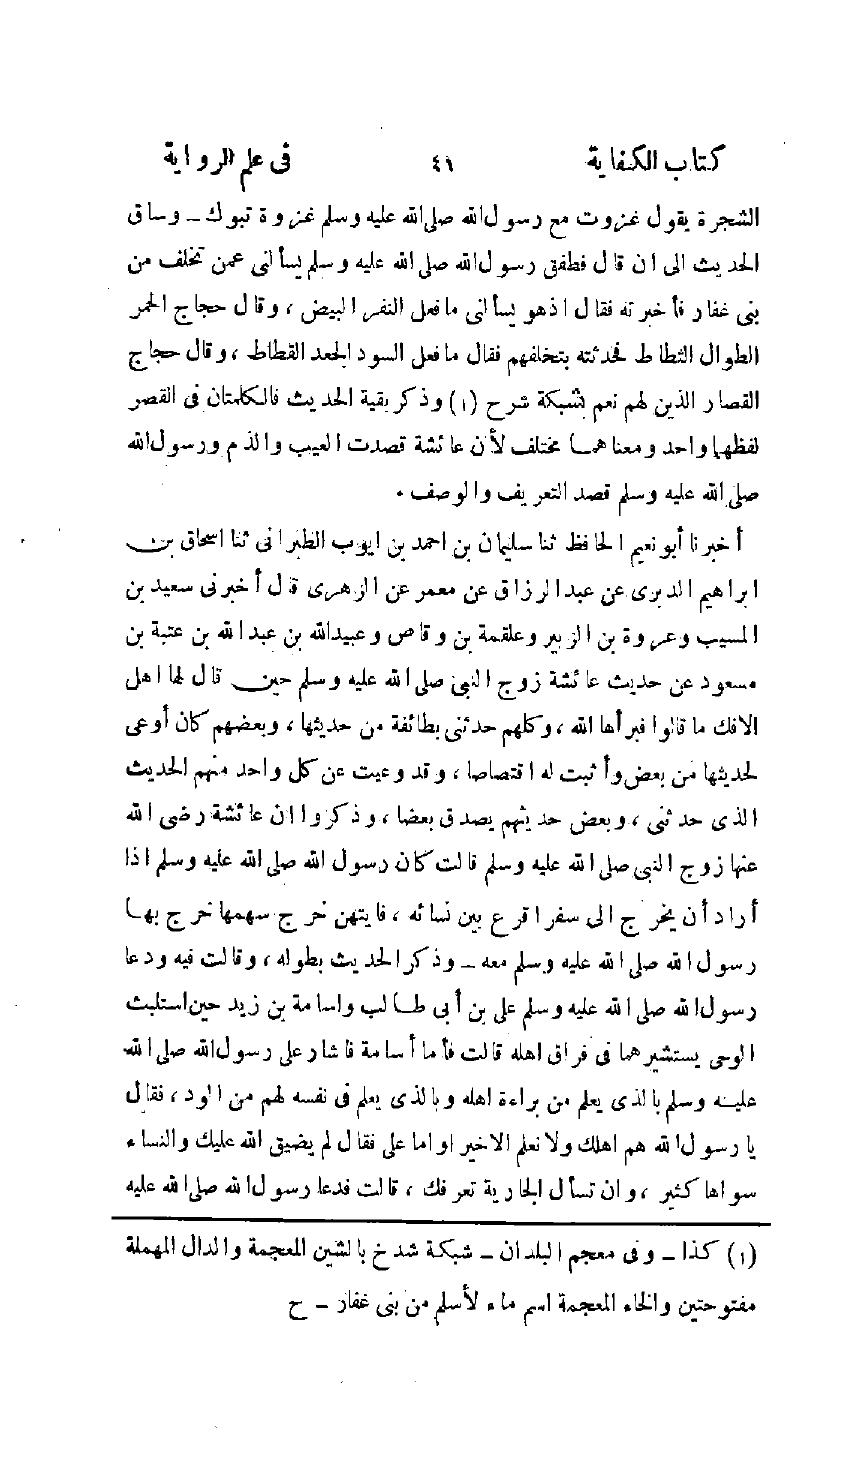 كتاب الكفاية ٤١ فى علم الرواية
الشجرة يقول غزوت مع رسول الله صلى الله عليه وسلم غزوة تبوك ــ وساق
الحديث الى ان قال فطفق رسول الله صلى الله عليه وسلم يسألنى عمن تخلف من
بنى غفار فأخبرته فقال اذهو يسألنى مافعل النفر البيض ، وقال حجاج الحمر
الطوال الثطاط فحدثته بتخلفهم فقال مافعل السود الجعد القطاط ، وقال حجاج
القصار الذين لهم نعم بشبكة شرح (١) وذكر بقية الحديث فالكلمتان فى القصر
لفظهما واحد ومعناهما مختلف لأن عائشة قصدت العيب والذم ورسول الله
صلى الله عليه وسلم قصد التعريف والوصف .
أخبرنا أبو نعيم الحافظ ثنا سليمان بن احمد بن ايوب الطبرانى ثنا اسحاق بن
ابراهيم الدبرى عن عبد الرزاق عن معمر عن الزهرى قال أخبرنى سعيد بن
المسيب وعروة بن الزبير وعلقمة بن وقاص وعبيدالله بن عبد الله بن عتبة بن
مسعود عن حديث عائشة زوج النبى صلى الله عليه وسلم حين قال لها اهل
الافك ما قالوا فبرأها الله ، وكلهم حدثنى بطائفة من حديثها ، وبعضهم كان أوعى
لحديثها من بعض وأثبت له اقتصاصا ، وقد وعيت عن كل واحد منهم الحديث
الذى حدثنى ، وبعض حديثهم يصدق بعضا ، وذكروا ان عائشة رضى الله
عنها زوج النبى صلى الله عليه وسلم قالت كان رسول الله صلى الله عليه وسلم اذا
أراد أن يخرج الى سفر اقرع بين نسائه ، فايتهن خرج سهمها خرج بها
رسول الله صلى الله عليه وسلم معه ــ وذكر الحديث بطوله ، وقالت فيه ودعا
رسول الله صلى الله عليه وسلم على بن أبى طالب واسامة بن زيد حين استلبث
الوحى يستشيرهما فى فراق اهله قالت فأما أسامة فاشار على رسول الله صلى الله
عليه وسلم بالذى يعلم من براءة اهله وبالذى يعلم فى نفسه لهم من الود ، فقال
يا رسول الله هم اهلك ولا نعلم الاخيرا واما على فقال لم يضيق الله عليك والنساء
سواها كثير ، وان تسأل الجارية تعرفك ، قالت فدعا رسول الله صلى الله عليه
(١) كذا ــ وفى معجم البلدان ــ شبكة شدخ بالشين المعجمة والدال المهملة
مفتوحتين والخاء المعجمة اسم ماء لأسلم من بنى غفار ــ ح